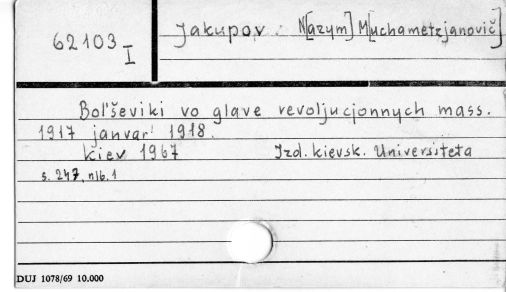 62103 I
Jakupov N[azym] M[uchametzjanovič]
Boľševiki vo glave revoljucjonnych mass.
1917 janvar' 1918.
Kiev 1967 Izd. kievsk. Universiteta
s. 247, nlb. 1
DUJ 1078/69 10.000